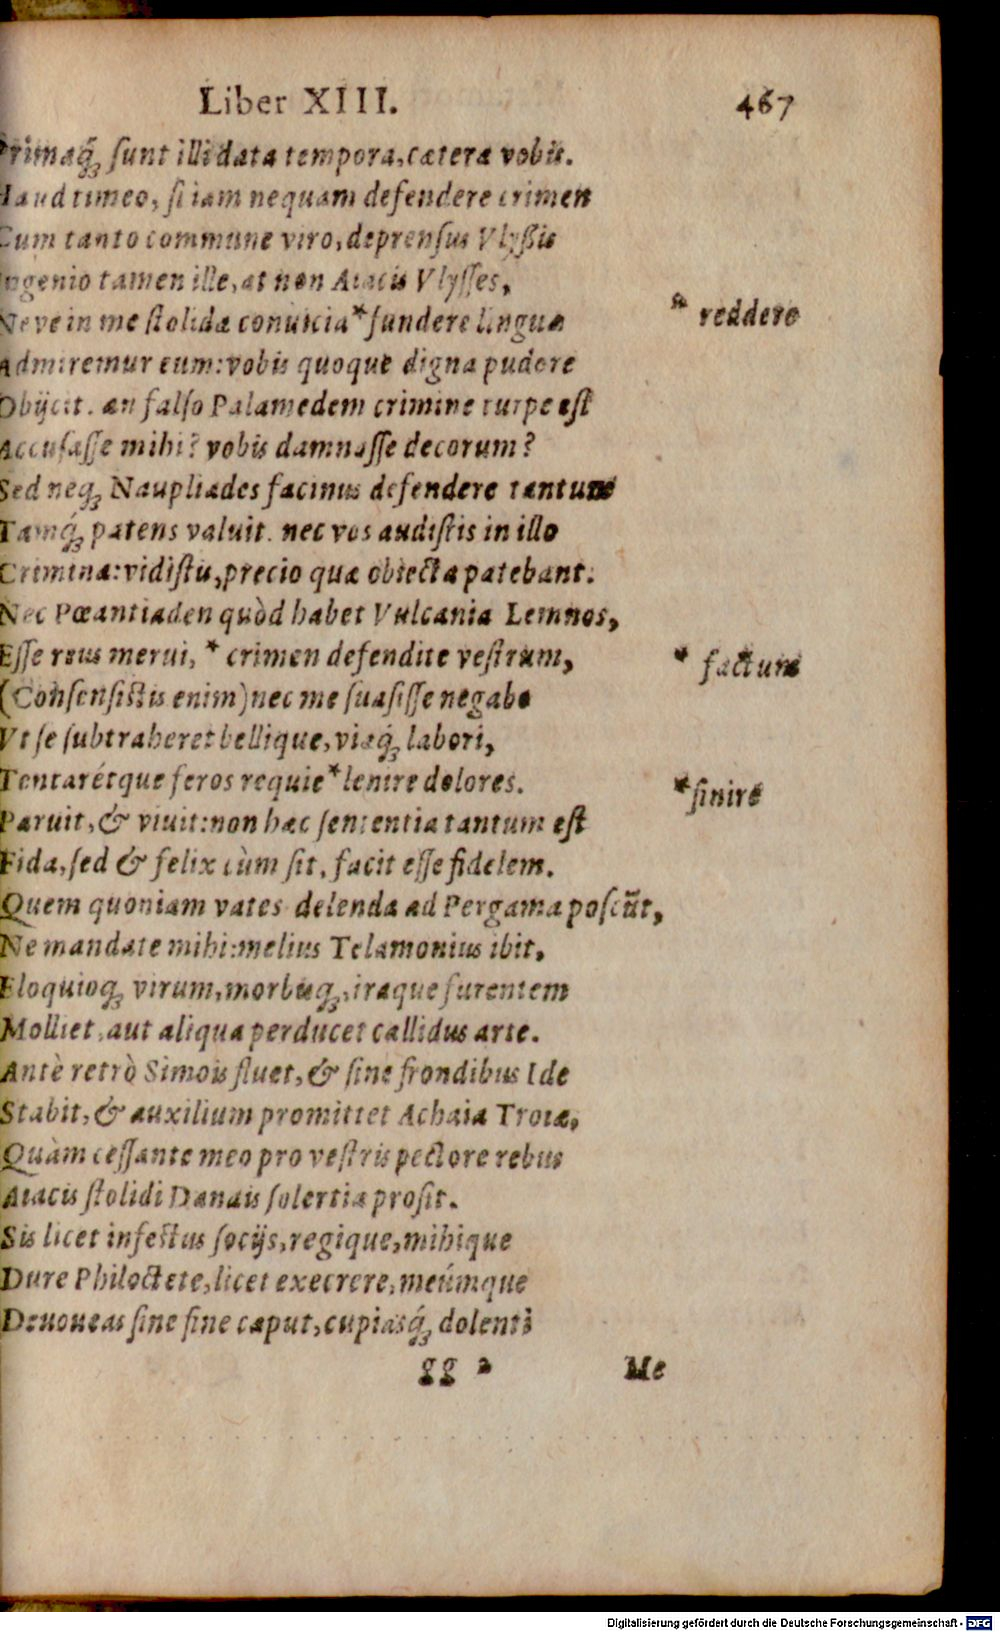 Liber XIII. 467
Primaq́ꝫ ſunt illi data tempora, cætera vobis.
Haud timeo, ſi iam nequam defendere crimen
Cum tanto commune viro, deprenſus Vlyßis
Ingenio tamen ille, at non Aiacis Vlyſſes,
Neve in me ſtolidæ conuicia * fundere linguæ * reddere
Admiremur eum: vobis quoque digna pudore
Obijcit. an falſo Palamedem crimine turpe eſt
Accuſaſſe mihi? vobis damnaſſe decorum?
Sed neqꝫ Naupliades facinus defendere tantum
Tamq́ꝫ patens valuit. nec vos audiſtis in illo
Crimina: vidiſtis, precio quæ obiecta patebant.
Nec Pœantiaden quòd habet Vulcania Lemnos,
Eſſe reus merui, * crimen defendite veſtrum, * factum
(Conſenſiſtis enim) nec me ſuaſiſſe negabo
Vt ſe ſubtraheret bellique, viæq́ꝫ labori,
Tentarétque feros requie * lenire dolores. * ſinire
Paruit, & viuit: non hæc ſententia tantum eſt
Fida, ſed & felix cùm ſit, facit eſſe fidelem.
Quem quoniam vates delenda ad Pergama poſcūt,
Ne mandate mihi: melius Telamonius ibit,
Eloquioqꝫ virum, morbisqꝫ, iraque furentem
Molliet, aut aliqua perducet callidus arte.
Antè retrò Simois fluet, & ſine frondibus Ide
Stabit, & auxilium promittet Achaia Troiæ,
Quàm ceſſante meo pro veſtris pectore rebus
Aiacis ſtolidi Danais ſolertia proſit.
Sis licet infeſtus ſocijs, regique, mihique
Dure Philoctete, licet execrere, meúmque
Deuoueas ſine fine caput, cupiasq́ꝫ dolenti
gg 2 Me
Digitalisierung gefördert durch die Deutsche Forschungsgemeinschaft - DFG